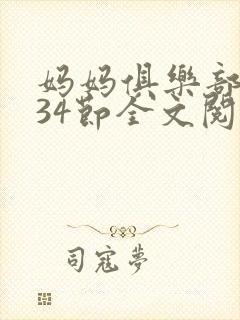 妈妈俱樂部
34節全文閱
司寇夢